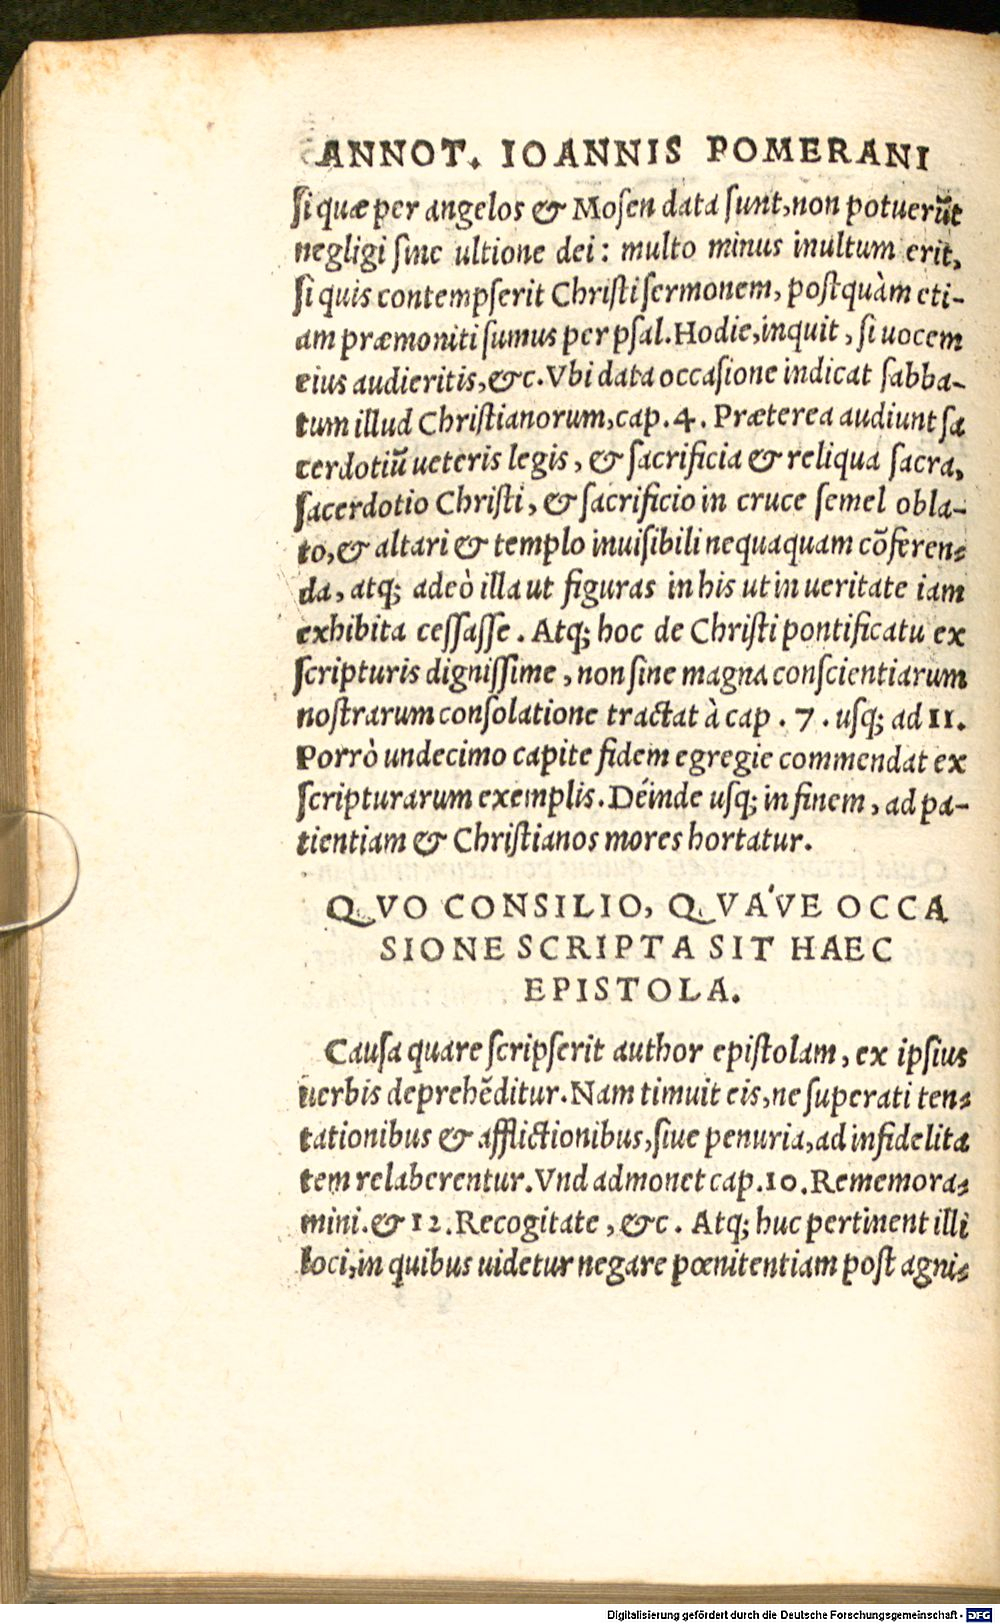 ANNOT. IOANNIS POMERANI
ſi quæ per angelos & Moſen data ſunt, non potuerūt
negligi ſine ultione dei: multo minus inultum erit,
ſi quis contempſerit Chriſti ſermonem, poſtquàm eti-
am præmoniti ſumus per pſal. Hodie, inquit, ſi uocem
eius audieritis, &c. Vbi data occaſione indicat ſabba-
tum illud Chriſtianorum, cap. 4. Præterea audiunt ſa
cerdotiū ueteris legis, & ſacrificia & reliqua ſacra,
ſacerdotio Chriſti, & ſacrificio in cruce ſemel obla-
to, & altari & templo inuiſibili nequaquam cōferen-
da, atq; adeò illa ut figuras in his ut in ueritate iam
exhibita ceſſaſſe. Atq; hoc de Chriſti pontificatu ex
ſcripturis digniſſime, non ſine magna conſcientiarum
noſtrarum conſolatione tractat à cap. 7. uſq; ad 11.
Porrò undecimo capite fidem egregie commendat ex
ſcripturarum exemplis. Déinde uſq; in finem, ad pa-
tientiam & Chriſtianos mores hortatur.
QVO CONSILIO, QVA'VE OCCA
SIONE SCRIPTA SIT HAEC
EPISTOLA.
Cauſa quare ſcripſerit author epiſtolam, ex ipſius
uerbis deprehēditur. Nam timuit eis, ne ſuperati ten-
tationibus & afflictionibus, ſiue penuria, ad infidelita
tem relaberentur. Vnd admonet cap. 10. Rememora-
mini. & 12. Recogitate, &c. Atq; huc pertinent illi
loci, in quibus uidetur negare pœnitentiam poſt agni-
Digitalisierung gefördert durch die Deutsche Forschungsgemeinschaft - DFG